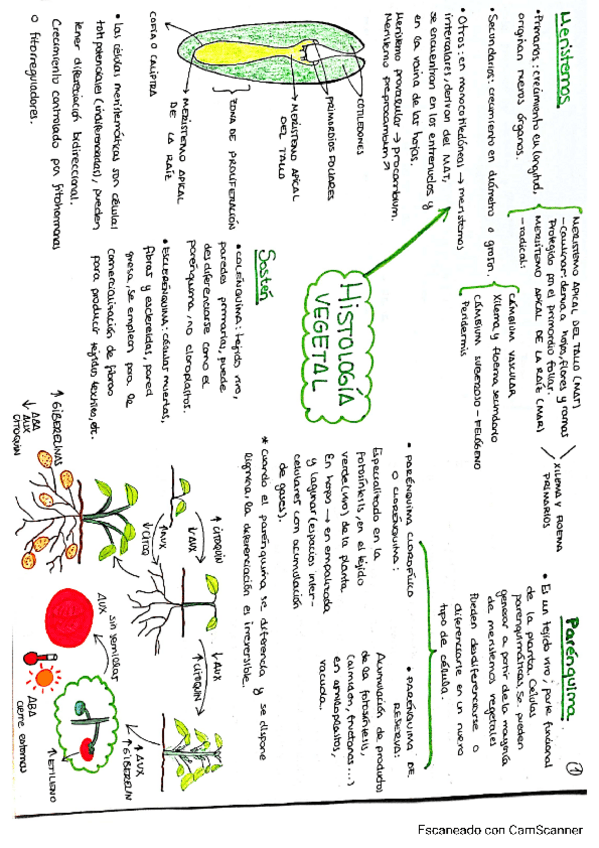 1
HISTOLOGÍA
VEGETAL
Meristemos
• Primarios: crecimiento en longitud,
originan nuevos órganos.
MERISTEMO APICAL DEL TALLO (MAT)
- Caulinar: deriva a hojas, flores y ramas
Protegido por el primordio foliar.
MERISTEMO APICAL DE LA RAÍZ (MAR)
- radical:
XILEMA Y FLOEMA
PRIMARIOS
• Secundarios: crecimiento en diámetro o grosor.
CÁMBIUM VASCULAR
Xilema y floema secundario
CÁMBIUM SUBEROSO - FELÓGENO
Peridermis
• Otros: en monocotiledóneas → meristemos
intercalares, derivan del MAT,
se encuentran en los entrenudos y
en la vaina de las hojas.
Meristemo provascular → procambium.
Meristemo preprocambium
COTILEDONES
PRIMORDIOS FOLIARES
MERISTEMO APICAL
DEL TALLO
ZONA DE PROLIFERACIÓN
MERISTEMO APICAL
DE LA RAÍZ
COFIA O CALIPTRA
• Las células meristemáticas son células
totipotenciales (indiferenciadas), pueden
tener diferenciación bidireccional.
Crecimiento controlado por fitohormonas
o fitorreguladores.
Sostén
• COLÉNQUIMA: tejido vivo,
paredes primarias, puede
desdiferenciarse como el
parénquima, no cloroplastos.
• ESCLERÉNQUIMA: células muertas,
fibras y esclereidas, pared
gruesa, se emplean para la
comercialización de fibras
para producir tejidos textiles, etc.
Parénquima
• Es un tejido vivo; parte funcional
de la planta. Células
parenquimáticas. Se pueden
generar a partir de la mayoría
de meristemos vegetales
Pueden desdiferenciarse o
diferenciarse en un nuevo
tipo de célula.
• PARÉNQUIMA CLOROFÍLICO
O CLORÉNQUIMA:
Especializado en la
fotosíntesis, en el tejido
verde (vivo) de la planta
En hojas → en empalizada
y lagunar (espacios inter-
celulares con acumulación
de gases).
• PARÉNQUIMA DE
RESERVA:
Acumulación de productos
de la fotosíntesis,
(almidón, fructanos...)
en amiloplastos,
vacuola.
* Cuando el parénquima se diferencia y se dispone
lignina, la diferenciación es irreversible.
↑ CITOQUIN
↓ AUX
↑ AUX
↓ CITOQ
↓ AUX
↑ CITOQUIN
↑ AUX
↑ GIBERELIN
↑ GIBERELINAS
↓ ABA
AUX
CITOQUIN
↑ ETILENO
AUX sin semillas
ABA
cierre estomas
Escaneado con CamScanner